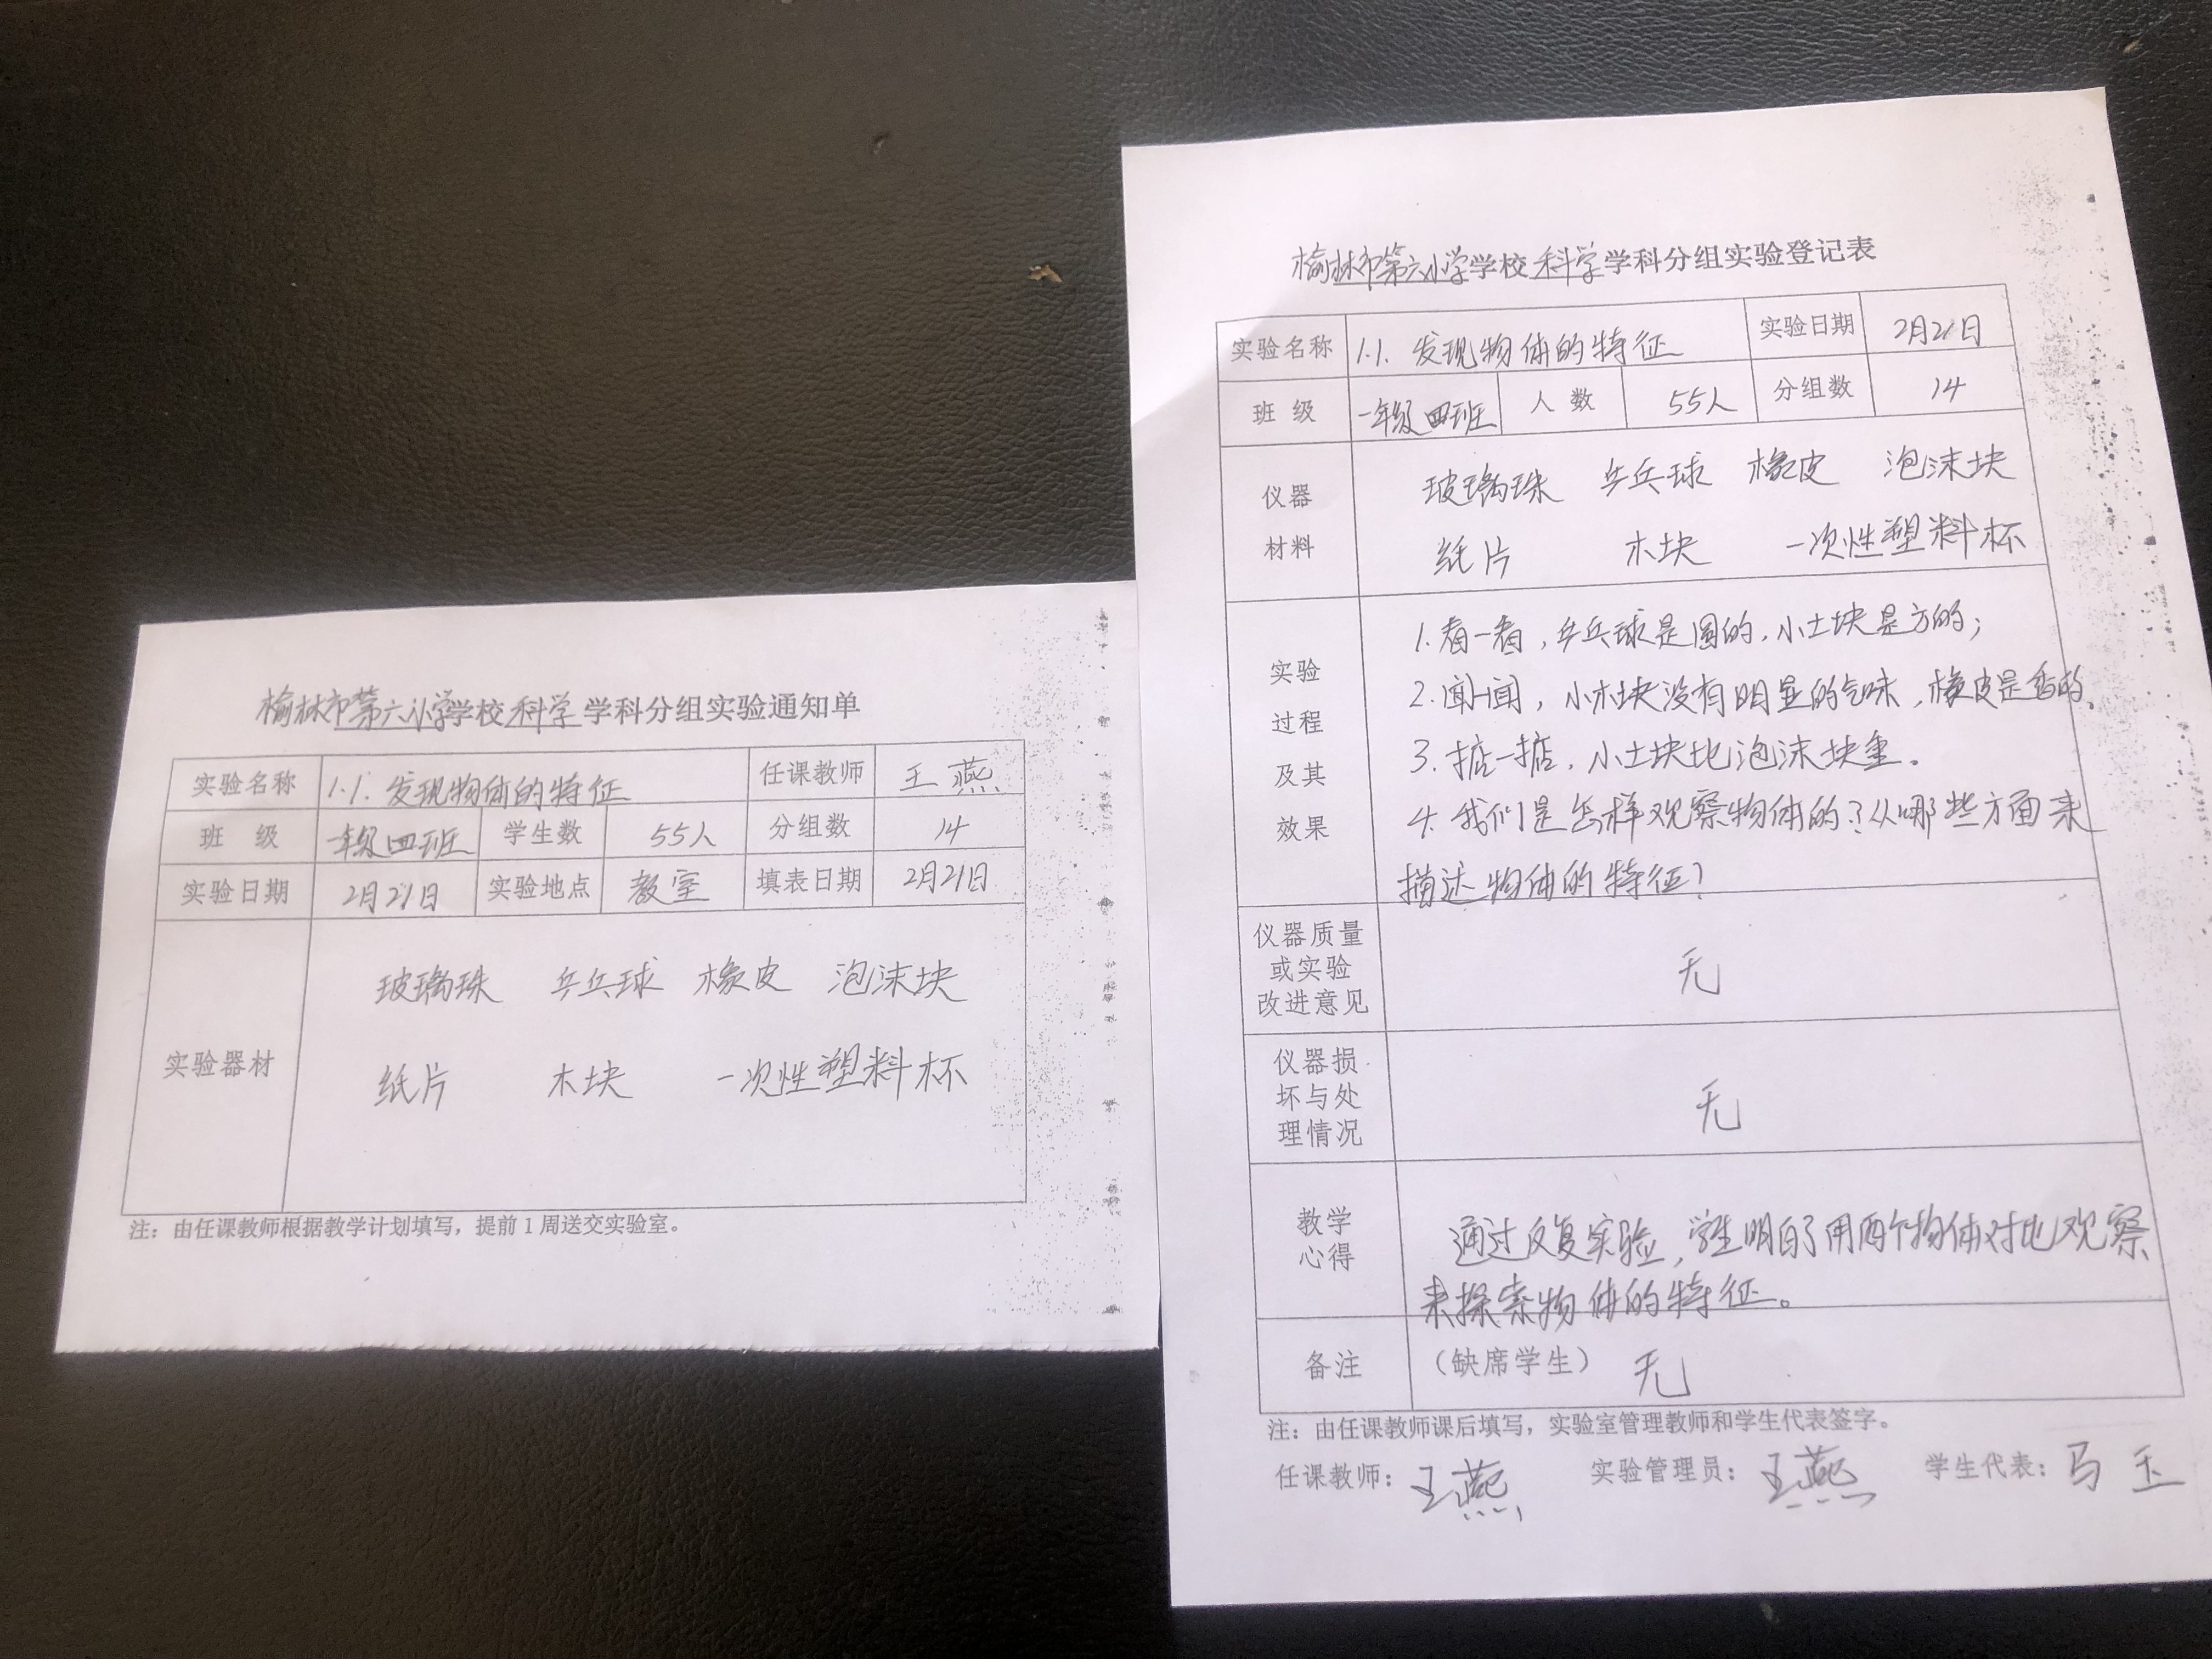 榆林市第六小学学校科学学科分组实验通知单
实验名称 1.1.发现物体的特征 任课教师 王燕
班 级 一年级四班 学生数 55人 分组数 14
实验日期 2月21日 实验地点 教室 填表日期 2月21日
实验器材
玻璃珠 乒乓球 橡皮 泡沫块
纸片 木块 一次性塑料杯
注：由任课教师根据教学计划填写，提前1周送交实验室。
榆林市第六小学学校科学学科分组实验登记表
实验名称 1.1.发现物体的特征 实验日期 2月21日
班 级 一年级四班 人 数 55人 分组数 14
仪器
材料
玻璃珠 乒乓球 橡皮 泡沫块
纸片 木块 一次性塑料杯
实验
过程
及其
效果
1.看一看，乒乓球是圆的，小土块是方的；
2.闻一闻，小木块没有明显的气味，橡皮是香的。
3.掂一掂，小土块比泡沫块重。
4.我们是怎样观察物体的？从哪些方面来
描述物体的特征？
仪器质量
或实验
改进意见
无
仪器损
坏与处
理情况
无
教学
心得
通过反复实验，学生明白了用两个物体对比观察
来探索物体的特征。
备注 （缺席学生） 无
注：由任课教师课后填写，实验室管理教师和学生代表签字。
任课教师：王燕 实验管理员：王燕 学生代表：马玉